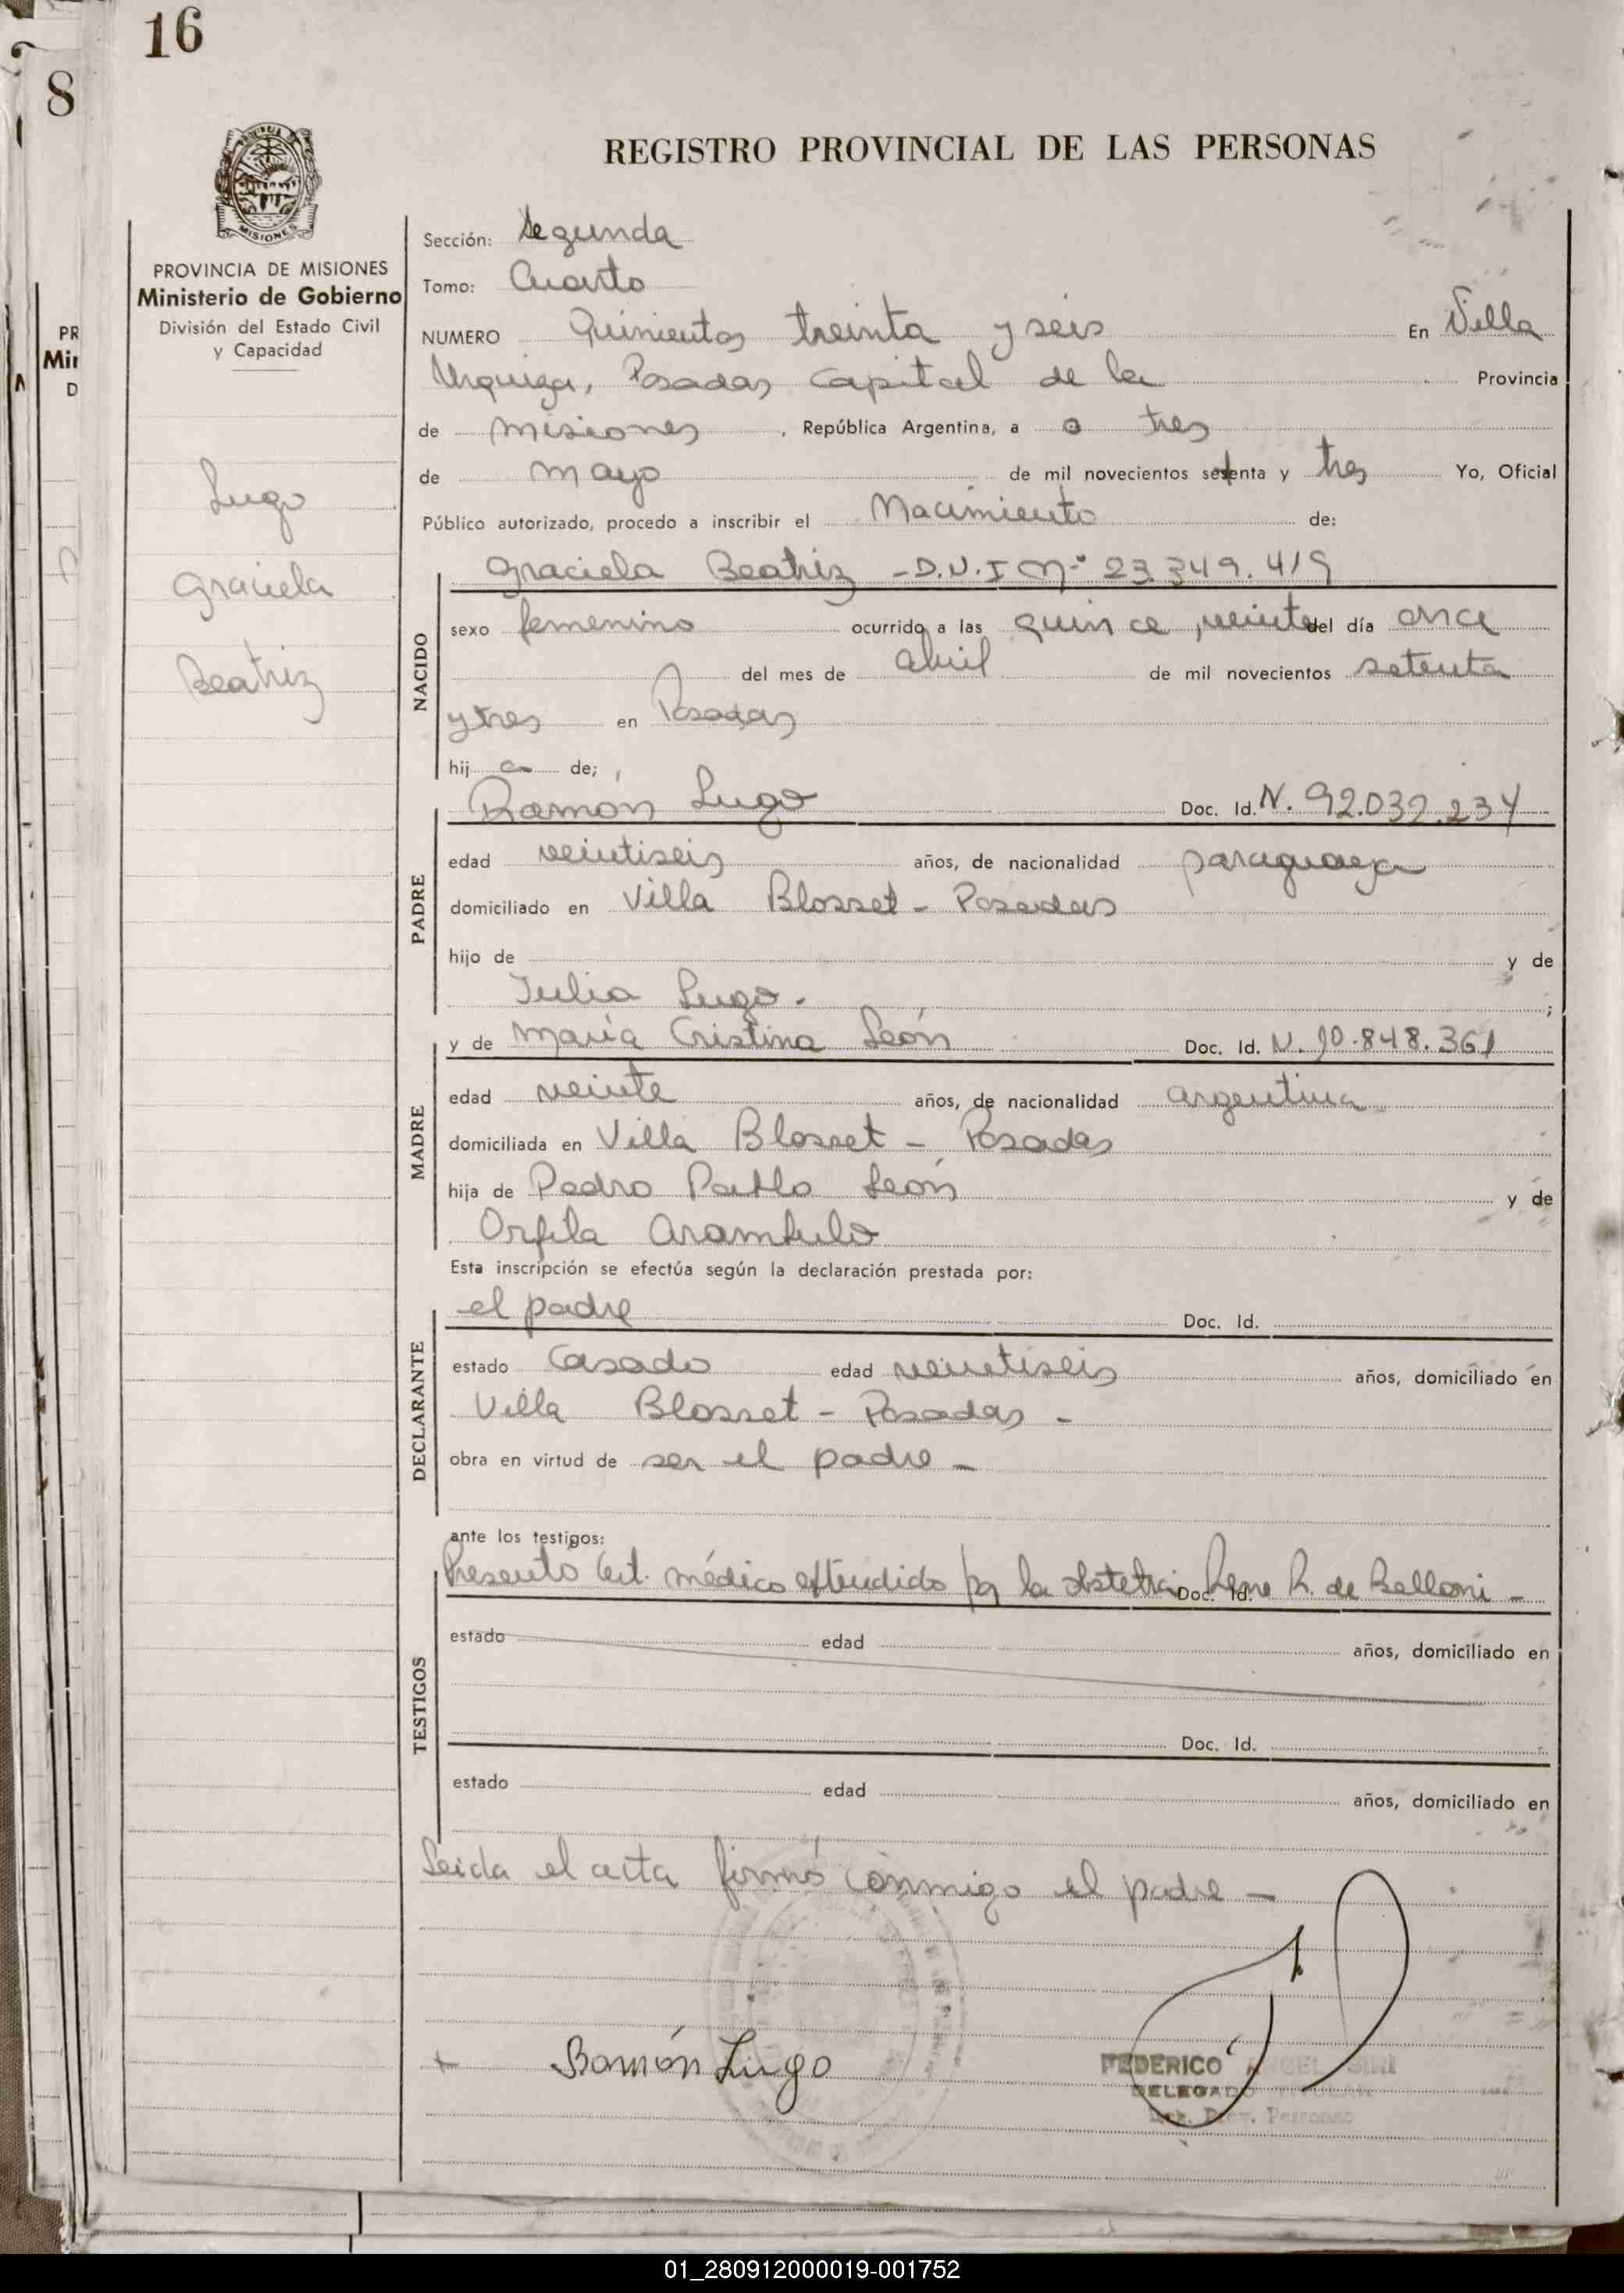 16
8
REGISTRO PROVINCIAL DE LAS PERSONAS
MISIONES
PROVINCIA DE MISIONES
Ministerio de Gobierno
División del Estado Civil
y Capacidad
Lugo
Graciela
Beatriz
Sección: Segunda
Tomo: Cuarto
NUMERO Quinientos treinta y seis En Villa
Urquiza, Posadas Capital de la Provincia
de misiones, República Argentina, a tres
de mayo de mil novecientos setenta y tres Yo, Oficial
Público autorizado, procedo a inscribir el Nacimiento de:
Graciela Beatriz - D.N.I Nº 23.349.419
NACIDO
sexo femenino ocurrido a las quince, veinte del día once
del mes de abril de mil novecientos setenta
y tres en Posadas
hij a de;
Ramón Lugo Doc. Id. N. 92.032.234
PADRE
edad veintiseis años, de nacionalidad paraguaya
domiciliado en Villa Blosset - Posadas
hijo de y de
Julia Lugo. ;
y de María Cristina León Doc. Id. N. 10.848.361
MADRE
edad veinte años, de nacionalidad argentina
domiciliada en Villa Blosset - Posadas
hija de Pedro Pablo León y de
Orfila Arambulo
Esta inscripción se efectúa según la declaración prestada por:
el padre Doc. Id.
DECLARANTE
estado Casado edad veintiseis años, domiciliado en
Villa Blosset - Posadas -
obra en virtud de ser el padre -
ante los testigos:
Presento Cert. médico extendido por la obstetra Doc. Id. R. de Belloni -
TESTIGOS
estado edad años, domiciliado en
Doc. Id.
estado edad años, domiciliado en
Leida el acta firmó conmigo el padre -
Ramón Lugo
FEDERICO ANGEL
DELEGADO
Prov. Personas
01_280912000019-001752